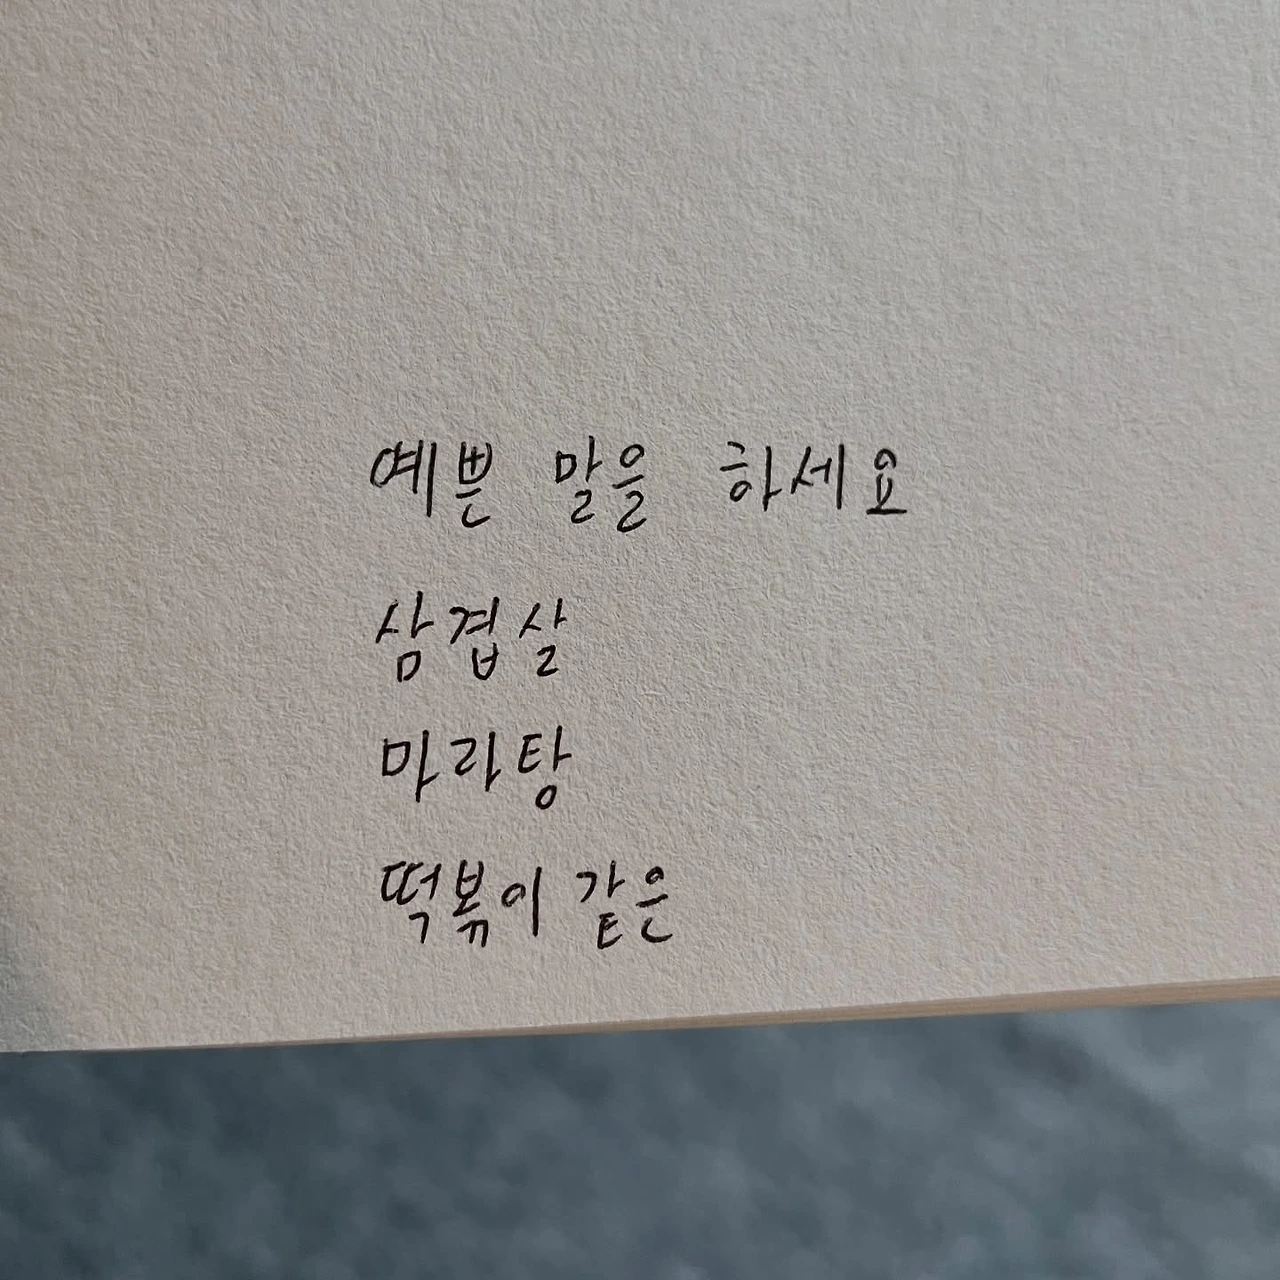 예쁜 말을 하세요
삼겹살
마라탕
떡볶이 같은